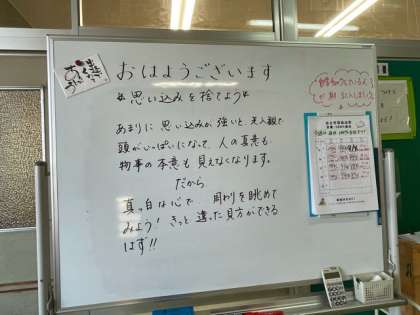 おはようございます
*思い込みを捨てよう*
あまりに思い込みが強いと、先入観で
頭がいっぱいになって、人の真意も
物事の本意も見えなくなります。
だから
真っ白な心で、周りを眺めて
みよう! きっと違った見方ができる
はず!!